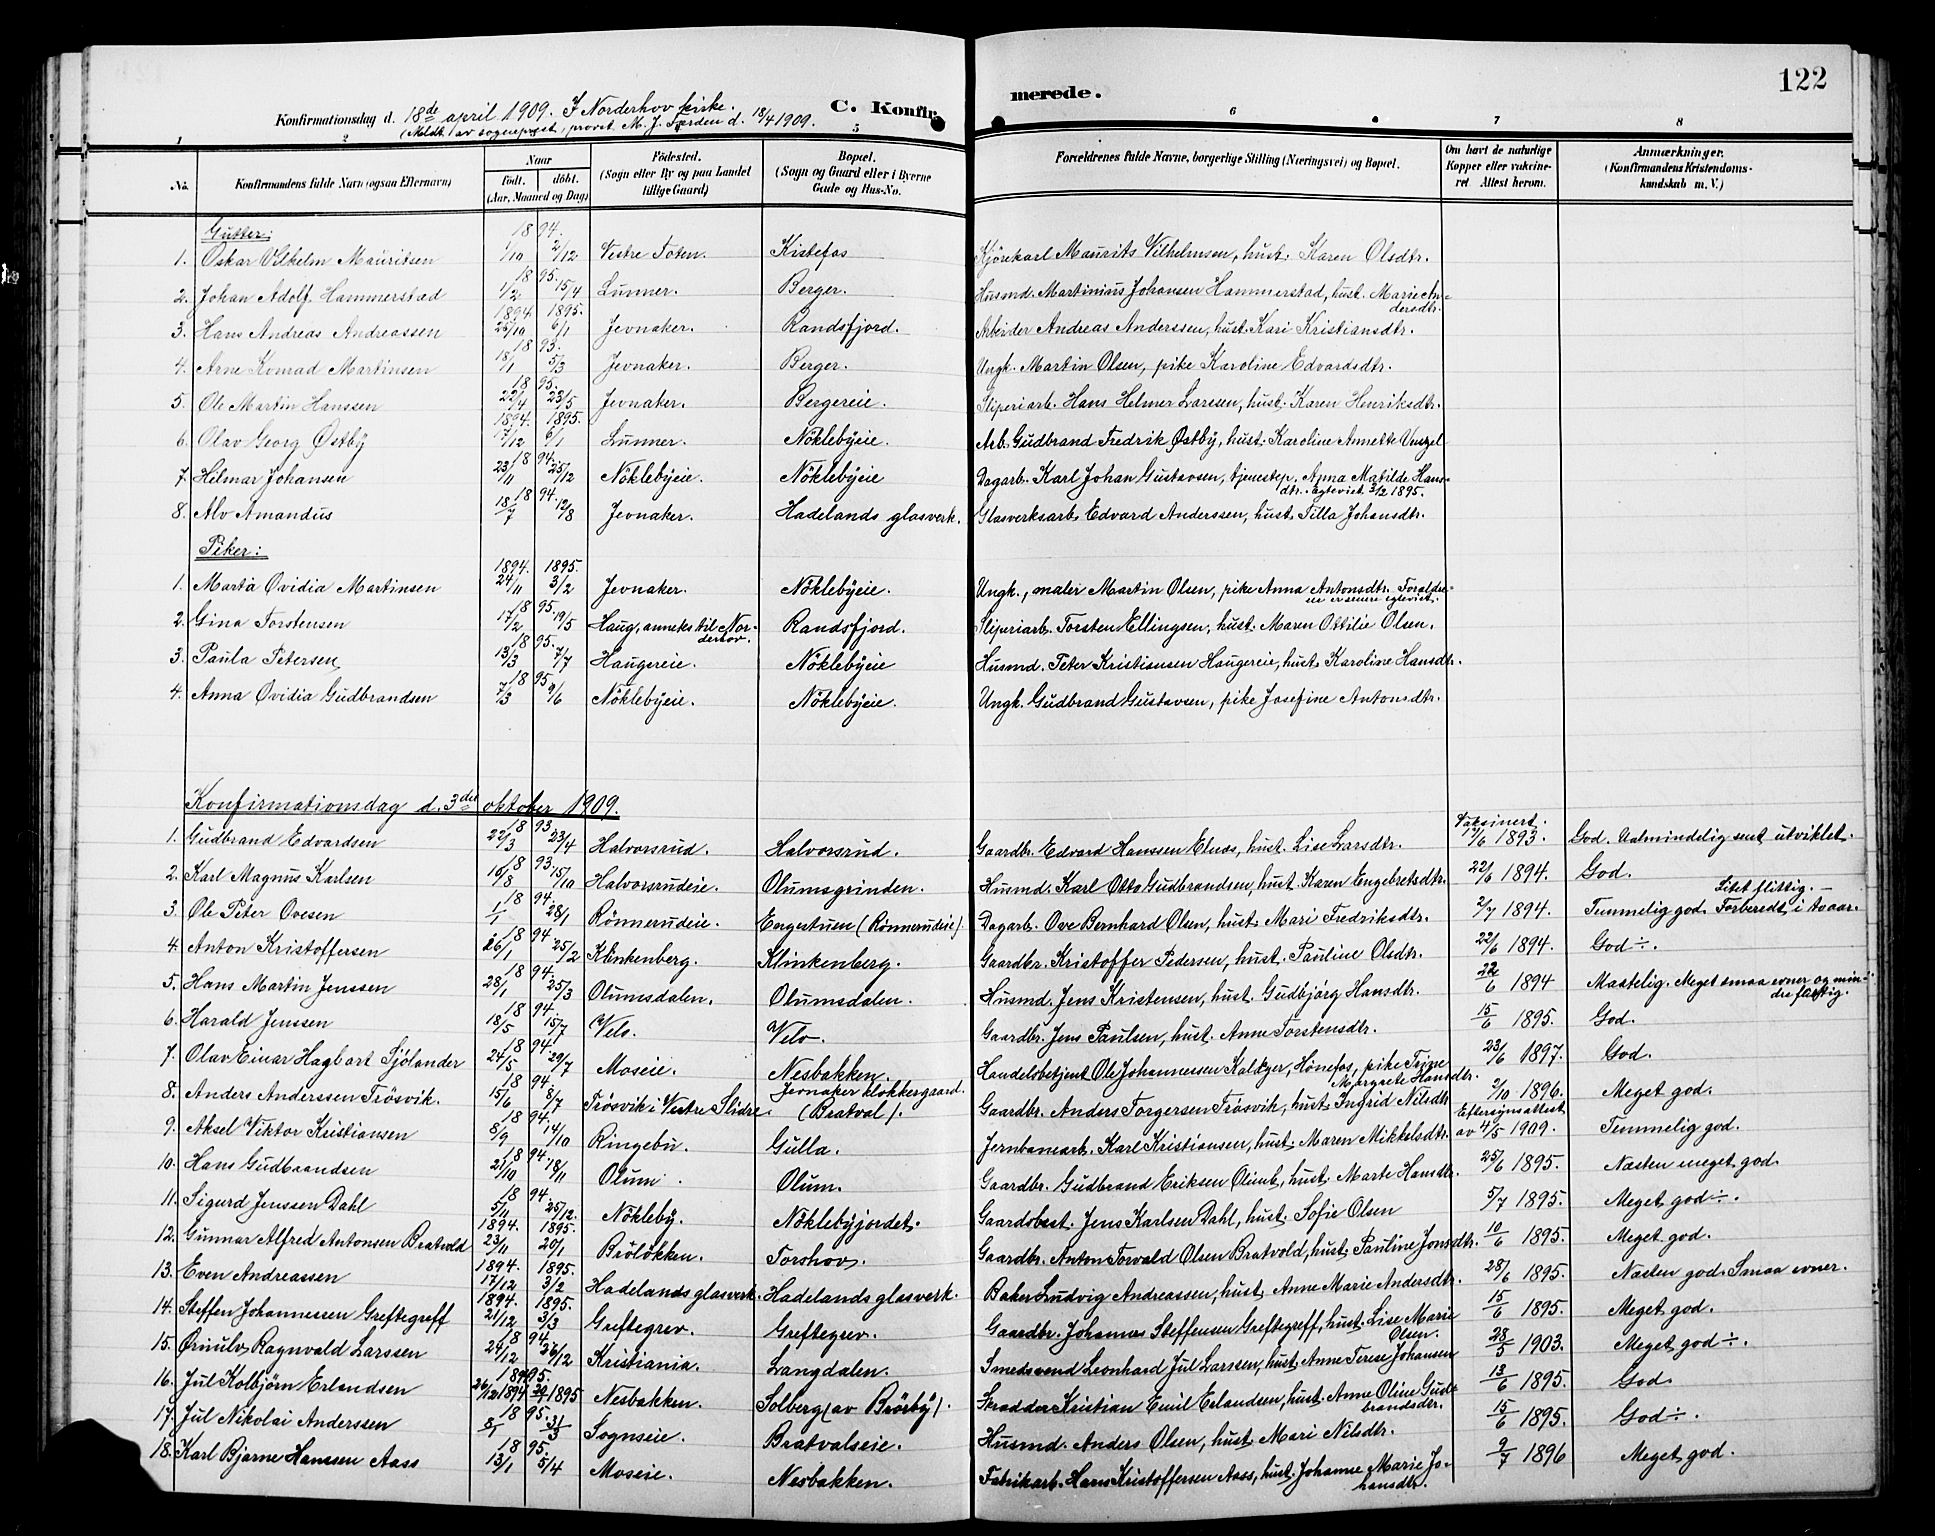 122
Konfirmationsdag d. 18de april 1909. I Norderhov kirke. C. Konfirmerede.
(Meldt av sogneprest, provst M. J. Færden d. 18/4 1909.
1 2 5 6 7 8
No. Konfirmandens fulde Navn (ogsaa Efternavn) Naar født. døbt. (Aar, Maaned og Dag) Födested. (Sogn eller By og paa Landet tillige Gaard) Bopæl. (Sogn og Gaard eller i Byerne Gade og Hus-No. Forældrenes fulde Navne, borgerlige Stilling (Næringsvei) og Bopæl. Om havt de naturlige Kopper eller vakcineret Attest herom. Anmærkninger. (Konfirmandens Kristendomskundskab m. V.)
Gutter:
1. Oskar Vilhelm Mauritsen 1894. 1/10 2/12 Vestre Toten. Kistefos Kjörekarl Maurits Vilhelmsen, hust. Karen Olsdtr.
2. Johan Adolf Hammerstad 1895. 1/2 15/4 Lunner. Berger. Husmd. Martinius Johansen Hammerstad, hust. Marie Andersdtr.
3. Hans Andreas Andreassen 1894. 25/10 1895. 6/1 Jevnaker. Randsfjord. Arbeider Andreas Anderssen, hust. Kari Kristiansdtr.
4. Arne Konrad Martinsen 1893. 18/1 5/3 Jevnaker. Berger. Ungk. Martin Olsen, pike Karoline Edvardsdtr.
5. Ole Martin Hanssen 1895. 22/4 23/5 Jevnaker. Bergereie. Sliperiarb. Hans Helmer Larssen, hust. Karen Henriksdtr.
6. Olav Georg Østby 1894. 17/12 1895. 6/1 Lunner. Nöklebyeie. Arb. Gudbrand Fredrik Østby, hust. Karoline Annette
7. Hilmar Johansen 1894. 23/11 25/12 Nöklebyeie. Nöklebyeie Dagarb. Karl Johan Gustavsen, tjenestep. Anna Matilde Hansdtr. Egteviet 3/2 1895.
8. Alv Amandus 1894. 18/7 12/8 Jevnaker. Hadelands glasverk. Glasverksarb. Edvard Anderssen, hust. Tilla Johansdtr.
Piker:
1. Marta Ovidia Martinsen 1894. 24/11 1895. 3/2 Jevnaker. Nöklebyeie. Ungk., maler Martin Olsen, pike Anna Antonsdtr. Forældrene er senere egteviet.
2. Gina Torstensen 1895. 17/2 19/5 Haug, anneks til Norderhov. Randsfjord. Sliperiarb. Torsten Ellingsen, hust. Maren Ottilie Olsen.
3. Paula Petersen 1895. 13/3 7/7 Haugereie. Nöklebyeie Husmd. Peter Kristiansen Haugereie, hust. Karoline Hansdtr.
4. Anna Ovidia Gudbrandsen 1895. 7/3 9/6 Nöklebyeie. Nöklebyeie. Ungk. Gudbrand Gustavsen, pike Josefine Antonsdtr.
Konfirmationsdag d. 3die oktober 1909.
1. Gudbrand Edvardsen 1893. 22/3 23/4 Halvorsrud. Halvorsrud. Gaardbr. Edvard Hanssen hust. Lise Larsdtr. Vaksinert. 17/6 1893. God. Ualmindelig sent utviklet.
2. Karl Magnus Karlsen 1893. 16/8 15/10 Halvorsrudeie. Olumsgrinden. Husmd. Karl Otto Gudbrandsen, hust. Karen Engebretsdtr. 22/6 1894. God.
3. Ole Peter Ovesen 1894. 1/1 28/1 Rönnerudeie. Engestuen (Rönnerudeie) Dagarb. Ove Bernhard Olsen, hust. Mari Fredriksdtr. 2/7 1894. Temmelig god. Litet flittig. — Forberedt i to aar.
4. Anton Kristoffersen 1894. 26/1 25/2 Klinkenberg. Klinkenberg. Gaardbr. Kristoffer Pedersen, hust. Pauline Olsdtr. 22/6 1894. God ÷.
5. Hans Martin Jenssen 1894. 28/1 25/3 Olumsdalen. Olumsdalen. Husmd. Jens Kristensen, hust. Gudbjörg Hansdtr. 22/6 1894 Maatelig. Meget smaa evner og mindre flittig.
6. Harald Jenssen 1894. 18/5 15/7 Velo. Velo. Gaardbr. Jens Paulsen, hust. Anne Torstensdtr. 15/6 1895. God.
7. Olav Einar Hagbart Sjölander 1894. 24/5 29/7 Moseie. Nesbakken. Handelsbetjent Ole Johannessen Hönefos, pike Trine Margrete Hansdtr. 23/6 1897. God.
8. Anders Anderssen Trösvik. 1894. 15/6 8/7 Trösvik i Vestre Slidre. Jevnaker klokkergaard. (Bratval). Gaardbr. Anders Torgersen Trösvik, hust. Ingrid Nilsdtr. 2/10 1896. Meget god.
9. Aksel Viktor Kristiansen 1894. 8/9 14/10 Ringebu. Gulla. Jernbanearb. Karl Kristiansen, hust. Maren Mikkelsdtr. Eftersynsattest av 4/5 1909. Temmelig god.
10. Hans Gudbrandsen 1894. 21/10 18/11 Olum. Olum. Gaardbr. Gudbrand Eriksen Olum, hust. Marte Hansdtr. 25/6 1895. Næsten meget god.
11. Sigurd Jenssen Dahl 1894. 5/11 25/12. Nökleby. Nöklebyjordet. Gaardsbest. Jens Karlsen Dahl, hust. Sofie Olsen 5/7 1895. Meget god ÷.
12. Gunnar Alfred Antonsen Bratvold 1894. 23/11 1895. 20/1 Brölökken. Torshov. Gaardbr. Anton Torvald Olsen Bratvold, hust. Pauline Jonsdtr. 10/6 1895. Meget god.
13. Even Andreassen 1894. 17/12 1895. 3/2 Hadelands glasverk. Hadelands glasverk. Baker Ludvig Andreassen, hust. Anne Marie Andersdtr. 28/6 1895. Næsten god. Smaa evner.
14. Steffen Johannessen Greftegreff 1894. 21/12 1895. 3/3 Greftegrev. Greftegrev. Gaardbr. Johannes Steffensen Greftegreff, hust. Lise Marie Olsen. 15/6 1895. Meget god.
15. Ørnulv Ragnvald Larssen 1894. 24/12 26/12 Kristiania. Langdalen. Smedsvend Leonhard Jul Larssen, hust. Anne Terese Johansen 28/5 1903. Meget god ÷.
16. Jul Kolbjörn Erlandsen 26/12 1894 1895 Nesbakken. Solberg (av Brörby). Skrædder Kristian Emil Erlandsen, hust. Anne Oline Gudbrandsdtr. 13/6 1895. God.
17. Jul Nikolai Anderssen 1895. 8/1 31/3 Sognseie. Bratvalseie. Husmd. Anders Olsen, hust. Mari Nilsdtr. 15/6 1895. God ÷.
18. Karl Bjarne Hanssen Aass 1895. 13/1 5/4 Moseie. Nesbakken. Fabrikarb. Hans Kristoffersen Aass, hust. Johanne Marie Johansdtr. 9/7 1896 Meget god.